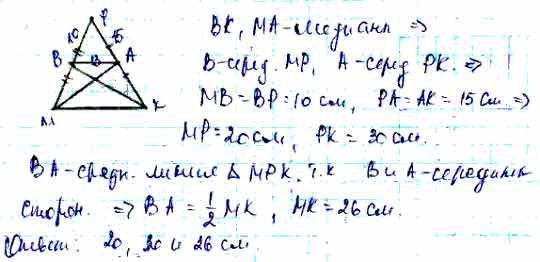 P
10 15
B 13 A
M K
BK, MA-медианы ⇒
B-серед. MP, A-серед PK. ⇒
MB=BP=10 см, PA=AK=15 см ⇒
MP=20 см, PK=30 см.
BA-средн. линия Δ MPK, т.к B и A-середины
сторон. ⇒ BA = 1/2 MK, MK=26 см.
Ответ: 20, 30 и 26 см.